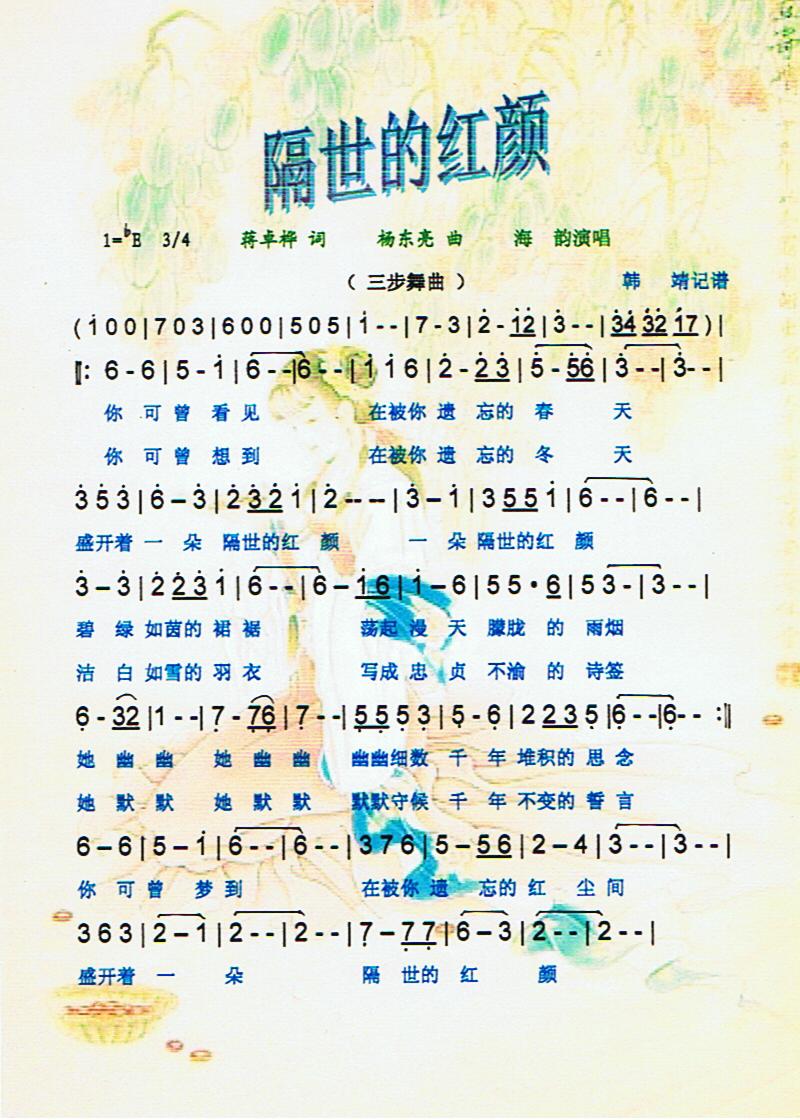 隔世的红颜
1=♭E 3/4 蒋卓桦 词 杨东亮 曲 海 韵演唱
（ 三步舞曲 ） 韩 靖记谱
( i 0 0 | 7 0 3 | 6 0 0 | 5 0 5 | i - - | 7 - 3 | 2̇ - i̇2̇ | 3̇ - - | 3̇4̇ 3̇2̇ i̇7 ) |
‖: 6 - 6 | 5 - i | 6 - - | 6 - - | i i 6 | 2̇ - 2̇3̇ | 5̇ - 5̇6̇ | 3̇ - - | 3̇ - - |
你 可 曾 看 见 在被你 遗 忘的 春 天
你 可 曾 想 到 在被你 遗 忘的 冬 天
3̇ 5̇ 3̇ | 6 – 3̇ | 2̇ 3̇2̇ i | 2̇ -- -- | 3̇ – i | 3 55 i | 6 - - | 6 - - |
盛开着 一 朵 隔世的红 颜 一 朵 隔世的红 颜
3̇ – 3̇ | 2̇ 2̇3̇ i | 6 - - | 6 – i6 | i – 6 | 5 5 · 6 | 5 3 - | 3 - - |
碧 绿 如茵的 裙 裾 荡起 漫 天 朦胧 的 雨烟
洁 白 如雪的 羽 衣 写成 忠 贞 不渝 的 诗签
6̣ - 32 | 1 - - | 7̣ - 7̣6̣ | 7̣ - - | 5̣5̣ 5̣ 3̣ | 5̣ - 6̣ | 2 23 5̣ | 6̣ - - | 6̣ - - :‖
她 幽 幽 她 幽 幽 幽幽细数 千 年 堆积的 思 念
她 默 默 她 默 默 默默守候 千 年 不变的 誓 言
6 – 6 | 5 – i | 6 - - | 6 - - | 3 7 6 | 5 – 56 | 2 – 4 | 3 - - | 3 - - |
你 可 曾 梦 到 在被你 遗 忘的 红 尘 间
3 6 3 | 2 – 1 | 2 - - | 2 - - | 7̣ – 7̣7̣ | 6 – 3 | 2 - - | 2 - - |
盛开着 一 朵 隔 世的 红 颜